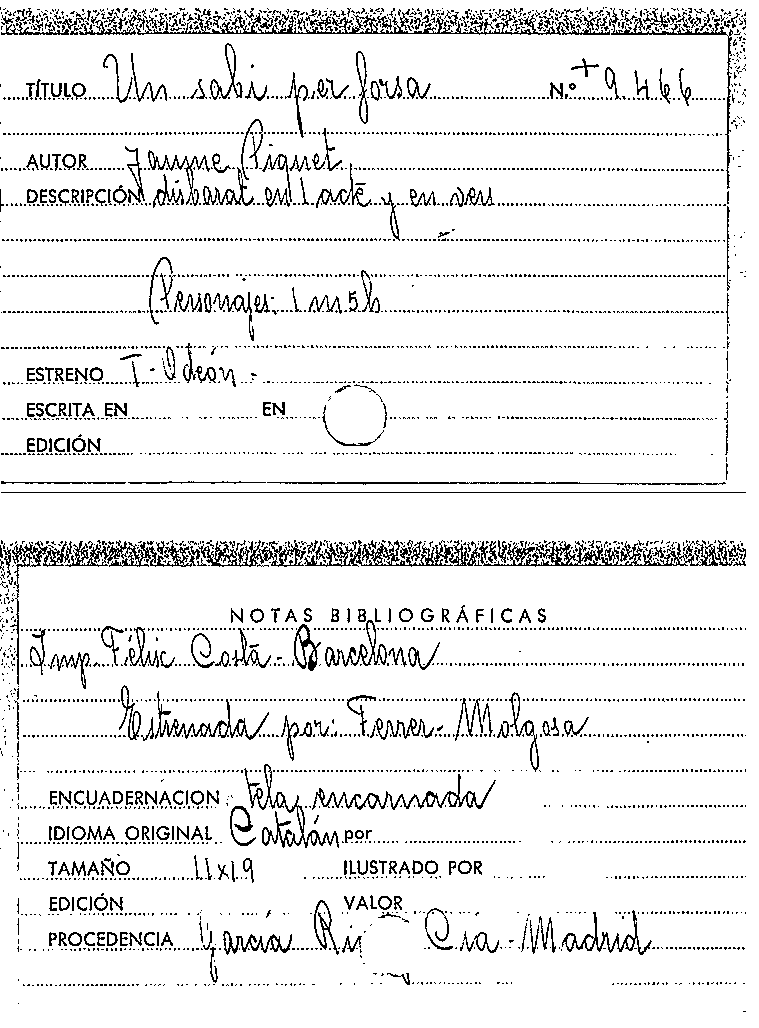 TÍTULO Un sabi per forsa N.º + 9.466
AUTOR Jaume Piquet
DESCRIPCIÓN disbarat en 1 acte y en vers
Personajes: 1 m 5 h
ESTRENO T-Odeón-
ESCRITA EN EN
EDICIÓN
NOTAS BIBLIOGRÁFICAS
Imp. Félix Costa-Barcelona
Estrenada por: Ferrer-Molgosa
ENCUADERNACION tela encarnada
IDIOMA ORIGINAL Catalán por
TAMAÑO 11x19 ILUSTRADO POR
EDICIÓN VALOR
PROCEDENCIA García Cía-Madrid